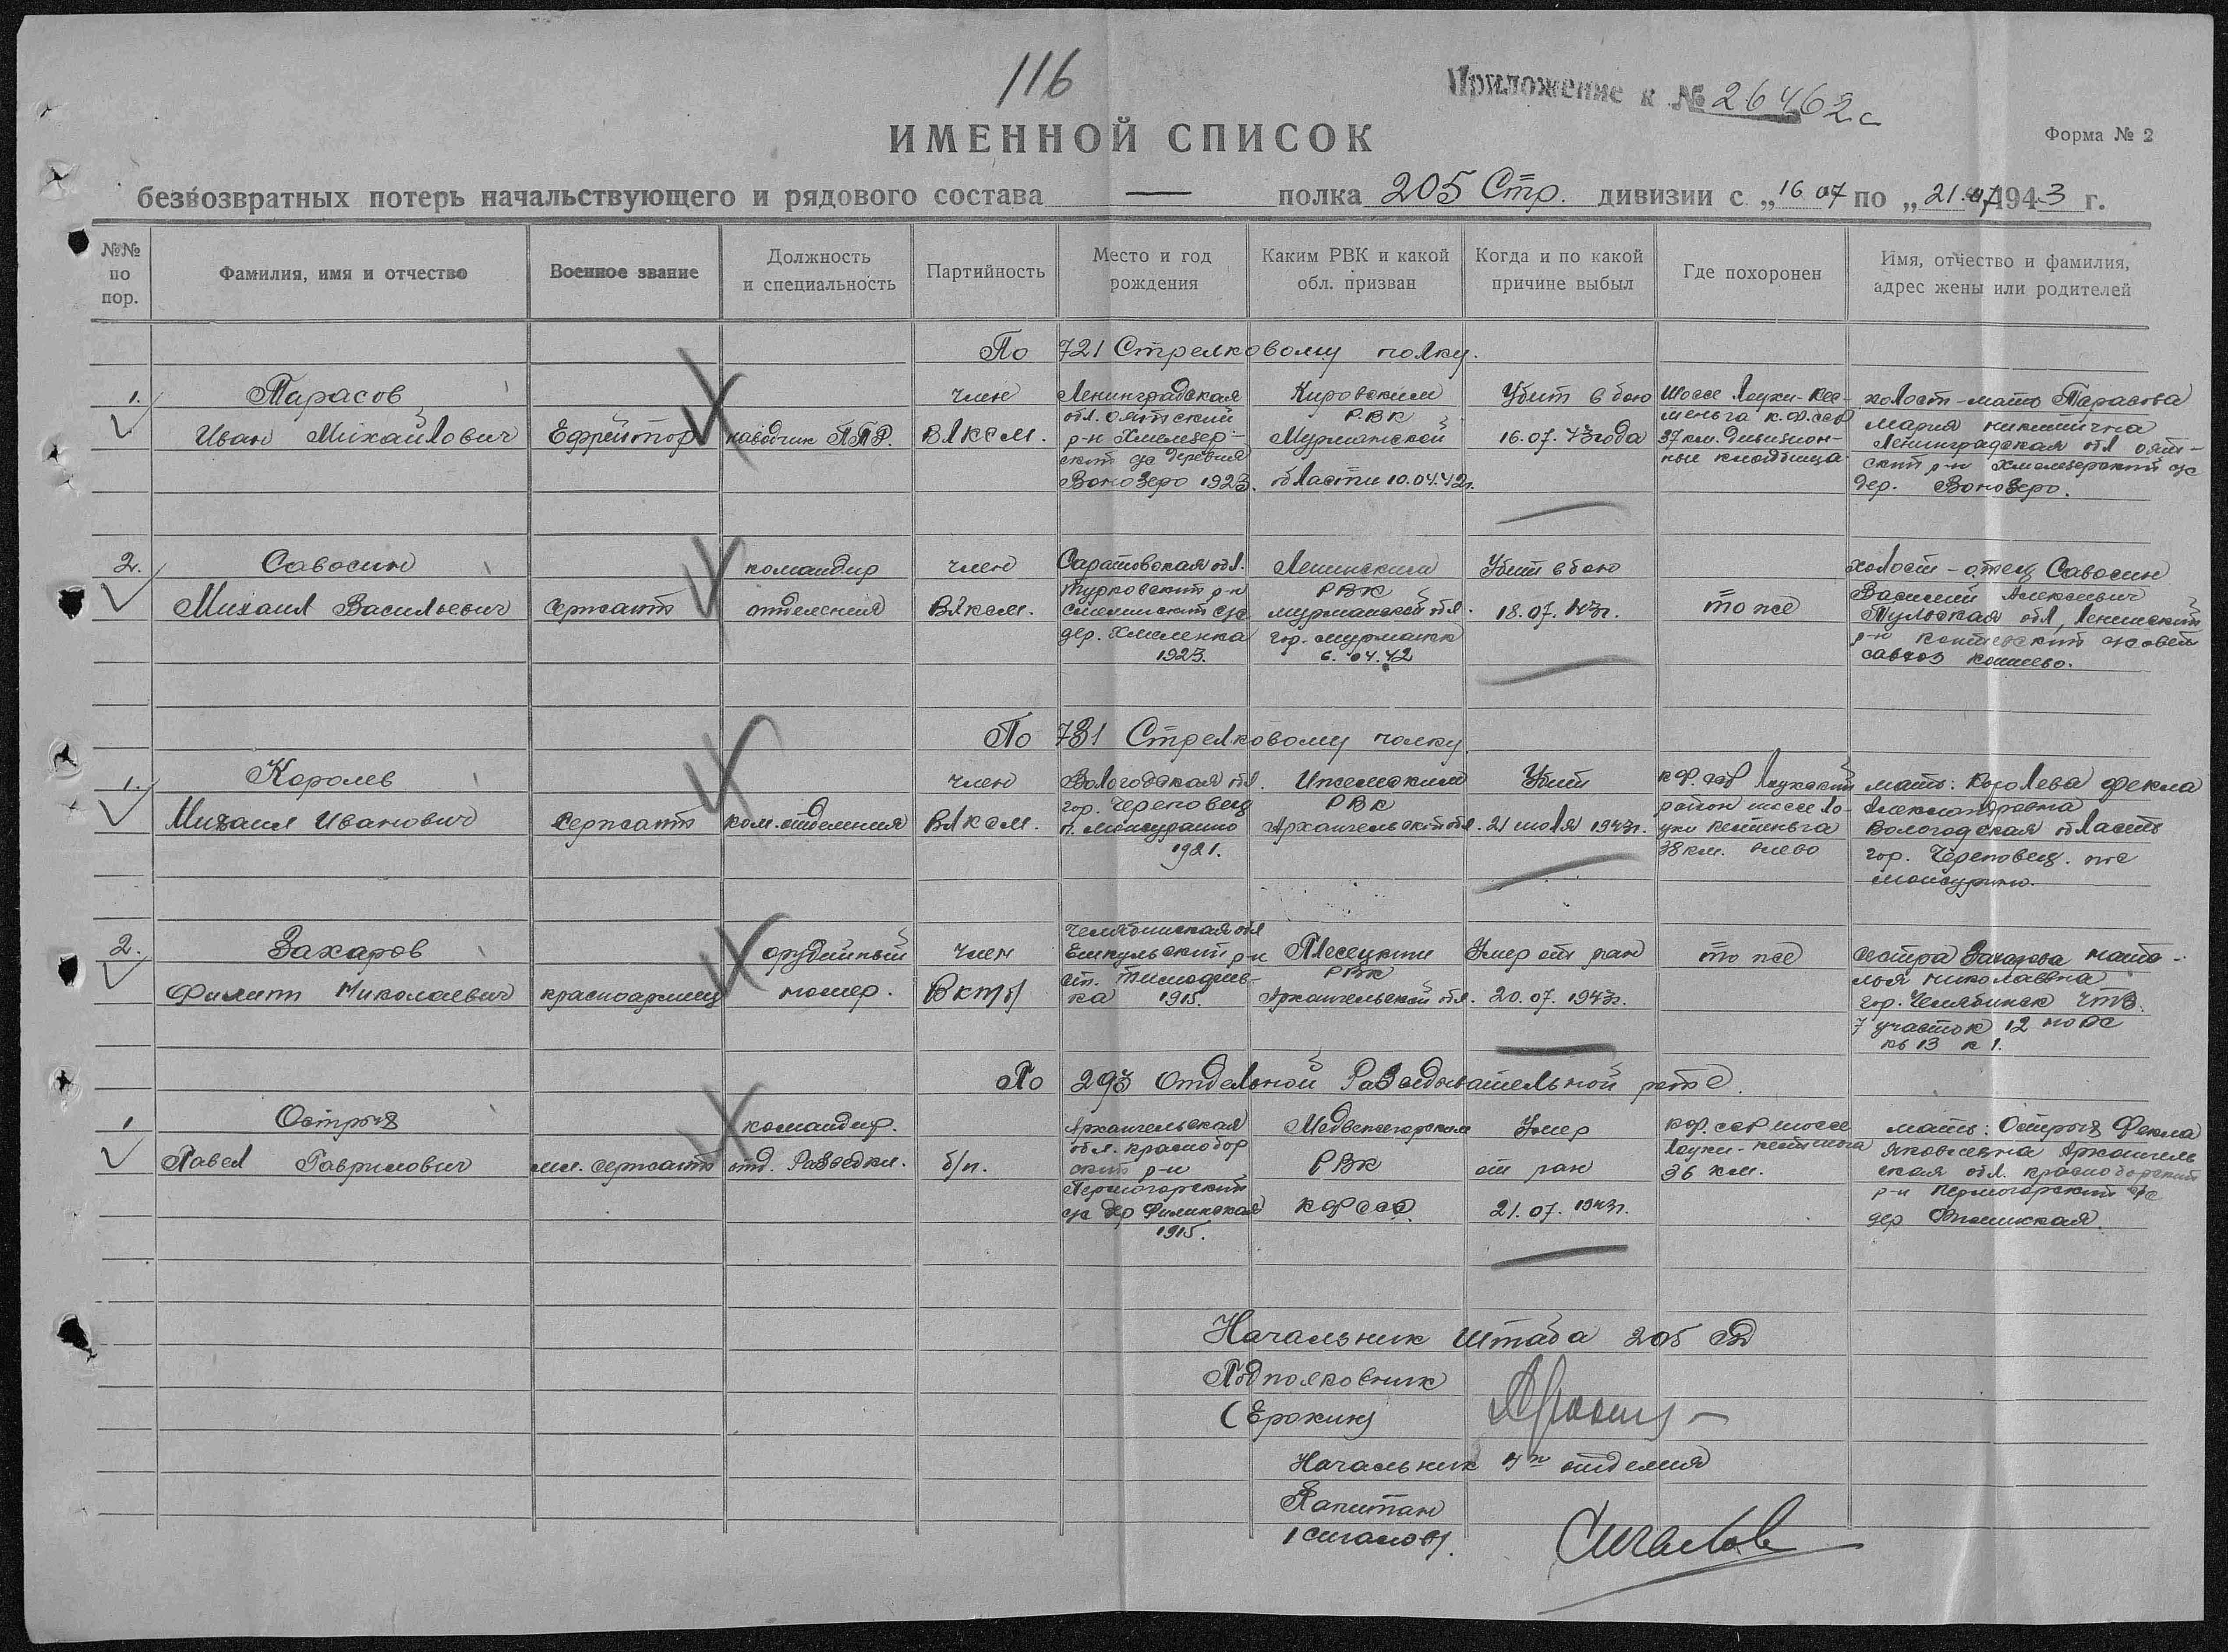 116
Приложение к № 26462с
ИМЕННОЙ СПИСОК
Форма № 2
безвозвратных потерь начальствующего и рядового состава — полка 205 Стр. дивизии с „16 07 по „21.07 1943 г.
№№ по пор.
Фамилия, имя и отчество
Военное звание
Должность и специальность
Партийность
Место и год рождения
Каким РВК и какой обл. призван
Когда и по какой причине выбыл
Где похоронен
Имя, отчество и фамилия, адрес жены или родителей
По 721 Стрелковому полку.
1.
Тарасов
Иван Михайлович
Ефрейтор
наводчик ПТР.
член
ВЛКСМ.
Ленинградская
обл. Оятский
р-н Хмелезер-
ский с/с деревня
Вонозеро 1923.
Кировским
РВК
Мурманской
области 10.04.42г.
Убит в бою
16.07.43 года
Шоссе Лоухи-Кес-
теньга К.Ф.ССР
37 км. дивизион-
ные кладбища
холост - мать Тарасова
Мария Никитична
Ленинградская обл Оят-
ский р-н Хмелезерский с/с
дер. Вонозеро.
2.
Савосин
Михаил Васильевич
сержант
командир
отделения
член
ВЛКСМ.
Саратовская обл.
Турковский р-н
с/с
дер. Хмелевка
1923.
Ленинским
РВК
Мурманской обл.
гор. Мурманск
6.04.42
Убит в бою
18.07.43г.
то же
холост - отец Савосин
Василий Алексеевич
Тульская обл, Ленинский
р-н
совхоз
По 731 Стрелковому полку.
1.
Королев
Михаил Иванович
Сержант
ком. отделения
член
ВЛКСМ.
Вологодская обл.
гор. Череповец
1921.
РВК
Архангельской обл.
Убит
21 июля 1943г.
КФ. ССР Лоухский
район шоссе Ло-
ухи Кестеньга
38 км. влево
мать: Королева Фекла
Александровна
Вологодская область
гор. Череповец.
2.
Захаров
Филипп Николаевич
красноармеец
орудийный
номер.
член
ВКП/б/
Челябинская обл
Еткульский р-н
1915.
Плесецким
РВК
Архангельской обл.
Умер от ран
20.07.1943г.
то же
сестра Захарова Ната-
лья Николаевна
гор. Челябинск ЧТЗ.
7 участок 12
кв 13 к 1.
По 293 Отдельной Разведывательной роте.
1
Павел Гаврилович
мл. сержант
командир.
отд. Разведки.
б/п.
Архангельская
обл. Краснобор
ский р-н
Пермогорский
с/с дер
1915.
Медвежегорским
РВК
КФССР
Умер
от ран
21.07.1943г.
КФ. ССР шоссе
Лоухи-Кестеньга
36 км.
мать: Фекла
Яковлевна Архангель
ская обл. Красноборский
р-н Пермогорский с/с
дер
Начальник Штаба 205 СД
Подполковник
(Ерохин)
Начальник 4го отделения
Капитан
/Сигалов/.
Сигалов